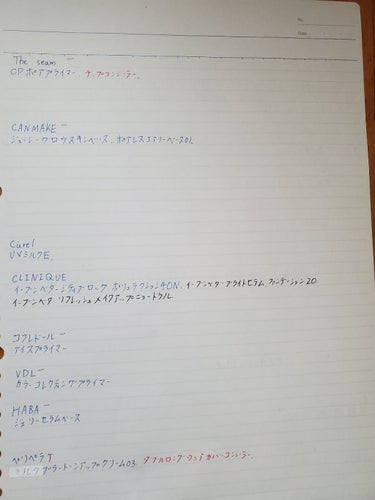 No.
Date
The seam
CPポアプライマー. チップコンシーラー.
CANMAKE
ジューシーグロウスキンベース. ポアレスエアリーベース01.
Curel
UVミルクE.
CLINIQUE
イーブンベターシティブロックポリュテクション40N. イーブンベターブライトセラム.ファンデーション20.
イーブンベターリフレッシュメイクアップニュートラル.
コフレドール
アイスプライマー
VDL
カラーコレクティングプライマー
HABA
ジェリーセラムベース
ペリペラ
ミルクブラートーンアップクリーム03. ダブルロングウェアカバーコンシーラー.